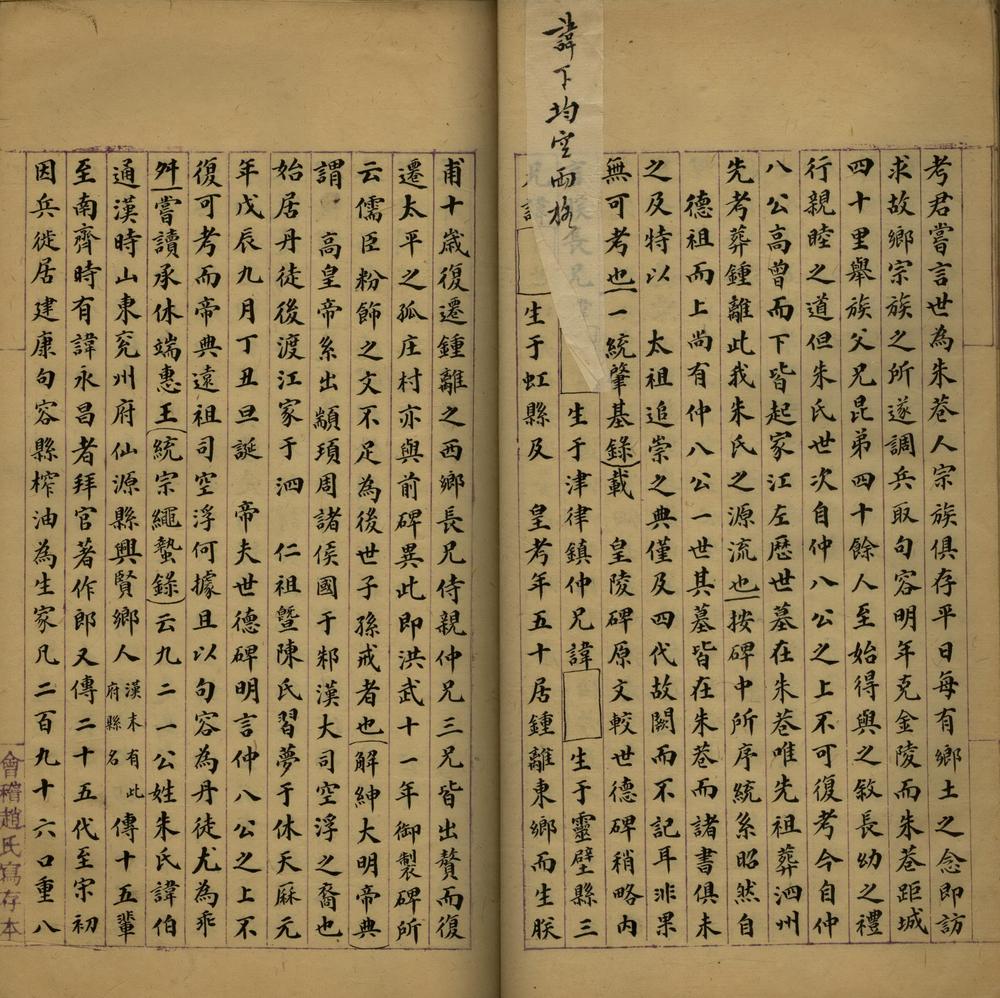 諱下均空兩格
考君嘗言世為朱巷人宗族俱存平日每有鄉土之念即訪
求故鄉宗族之所遂調兵取句容明年克金陵而朱巷距城
四十里舉族父兄昆弟四十餘人至始得與之敘長幼之禮
行親睦之道但朱氏世次自仲八公之上不可復考今自仲
八公高曾而下皆起家江左歷世墓在朱巷唯先祖葬泗州
先考葬鍾離此我朱氏之源流也按碑中所序統系昭然自
德祖而上尚有仲八公一世其墓皆在朱巷而諸書俱未
之及特以 太祖追崇之典僅及四代故闕而不記耳非果
無可考也一統肇基錄載 皇陵碑原文較世德碑稍略內
生于津律鎮仲兄諱 生于靈壁縣三
生于虹縣及 皇考年五十居鍾離東鄉而生朕
甫十歲復遷鍾離之西鄉長兄侍親仲兄三兄皆出贅而復
遷太平之孤庄村亦與前碑異此即洪武十一年御製碑所
云儒臣粉飾之文不足為後世子孫戒者也解紳大明帝典
謂 高皇帝系出顓頊周諸侯國于邾漢大司空浮之裔也
始居丹徒後渡江家于泗 仁祖暨陳氏習夢于休天庥元
年戊辰九月丁丑旦誕 帝夫世德碑明言仲八公之上不
復可考而帝典遠祖司空浮何據且以句容為丹徒尤為乖
舛嘗讀承休端惠王統宗繩蟄錄云九二一公姓朱氏諱伯
通漢時山東兗州府仙源縣興賢鄉人漢末有此府縣名傳十五輩
至南齊時有諱永昌者拜官著作郎又傳二十五代至宋初
因兵徙居建康句容縣榨油為生家凡二百九十六口重八
會稽趙氏寫存本